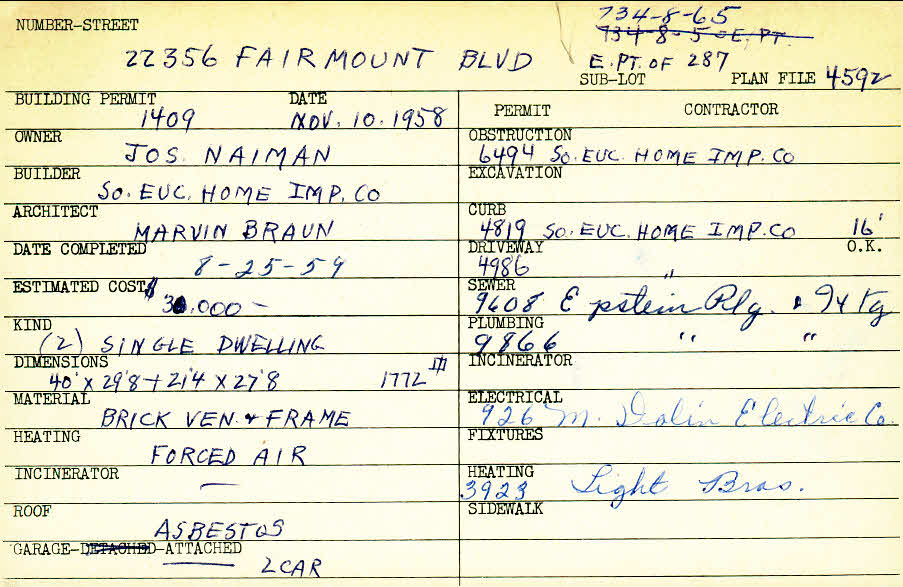 NUMBER-STREET
734-8-65
734-8-5-E. PT.
22356 FAIRMOUNT BLVD
E. PT. OF 287
SUB-LOT PLAN FILE 4592
BUILDING PERMIT DATE
1409 NOV. 10. 1958
PERMIT CONTRACTOR
OWNER
JOS. NAIMAN
OBSTRUCTION
6494 SO. EUC. HOME IMP. CO
BUILDER
SO. EUC. HOME IMP. CO
EXCAVATION
ARCHITECT
MARVIN BRAUN
CURB
4819 SO. EUC. HOME IMP. CO 16'
DATE COMPLETED
8-25-59
DRIVEWAY O.K.
4986 "
ESTIMATED COST
$ 30,000-
SEWER
9608 Epstein Plg. & Htg
KIND
(2) SINGLE DWELLING
PLUMBING
9866 " "
DIMENSIONS
40' X 29'8 + 21'4 X 27'8 1772
INCINERATOR
MATERIAL
BRICK VEN. & FRAME
ELECTRICAL
926 M. Dolin Electric Co.
HEATING
FORCED AIR
FIXTURES
INCINERATOR
—
HEATING
3923 Light Bros.
ROOF
ASBESTOS
SIDEWALK
GARAGE-DETACHED-ATTACHED
2 CAR